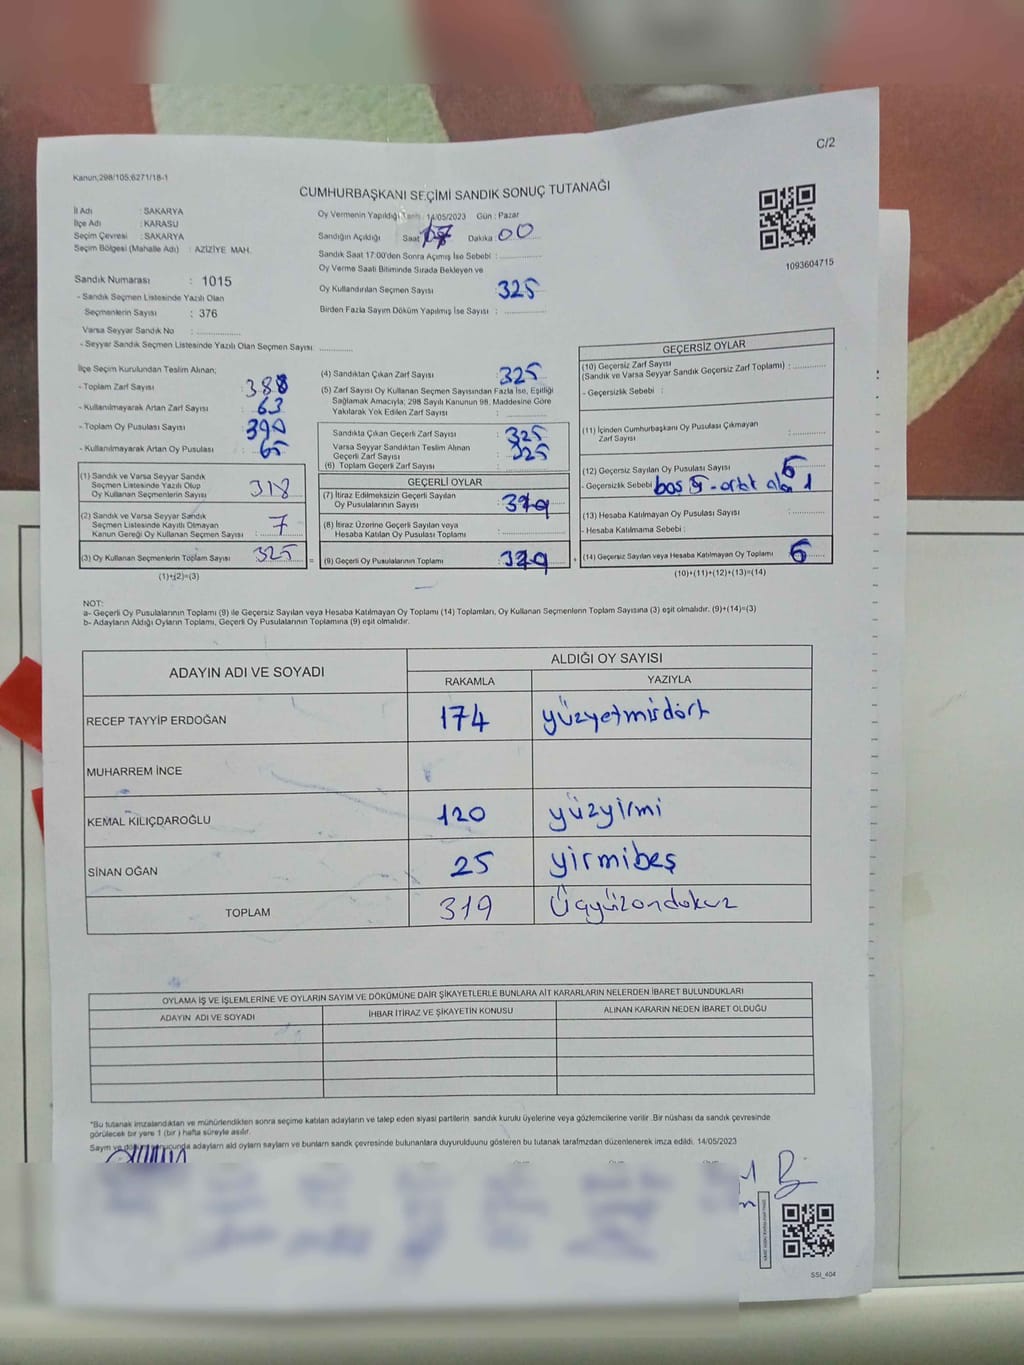 C/2
Kanun;298/105;6271/18-1
CUMHURBAŞKANI SEÇİMİ SANDIK SONUÇ TUTANAĞI
1093604715
İl Adı : SAKARYA
İlçe Adı : KARASU
Seçim Çevresi : SAKARYA
Seçim Bölgesi (Mahalle Adı) : AZİZİYE MAH.
Sandık Numarası : 1015
- Sandık Seçmen Listesinde Yazılı Olan
Seçmenlerin Sayısı : 376
Varsa Seyyar Sandık No :
- Seyyar Sandık Seçmen Listesinde Yazılı Olan Seçmen Sayısı:
Oy Vermenin Yapıldığı Tarih : 14/05/2023 Gün : Pazar
Sandığın Açıldığı Saat 17 Dakika 00
Sandık Saat 17:00'den Sonra Açımış İse Sebebi :
Oy Verme Saati Bitiminde Sırada Bekleyen ve
Oy Kullandırılan Seçmen Sayısı 325
Birden Fazla Sayım Döküm Yapılmış İse Sayısı :
İlçe Seçim Kurulundan Teslim Alınan;
- Toplam Zarf Sayısı : 388
- Kullanılmayarak Artan Zarf Sayısı : 63
- Toplam Oy Pusulası Sayısı : 390
- Kullanılmayarak Artan Oy Pusulası : 65
(1) Sandık ve Varsa Seyyar Sandık
Seçmen Listesinde Yazılı Olup
Oy Kullanan Seçmenlerin Sayısı : 318
(2) Sandık ve Varsa Seyyar Sandık
Seçmen Listesinde Kayıtlı Olmayan
Kanun Gereği Oy Kullanan Seçmen Sayısı : 7
(3) Oy Kullanan Seçmenlerin Toplam Sayısı 325
(1)+(2)=(3)
(4) Sandıktan Çıkan Zarf Sayısı : 325
(5) Zarf Sayısı Oy Kullanan Seçmen Sayısından Fazla İse, Eşitliği
Sağlamak Amacıyla; 298 Sayılı Kanunun 98. Maddesine Göre
Yakılarak Yok Edilen Zarf Sayısı :
Sandıkta Çıkan Geçerli Zarf Sayısı : 325
Varsa Seyyar Sandıktan Teslim Alınan
Geçerli Zarf Sayısı : 325
(6) Toplam Geçerli Zarf Sayısı :
GEÇERLİ OYLAR
(7) İtiraz Edilmeksizin Geçerli Sayılan
Oy Pusulalarının Sayısı : 319
(8) İtiraz Üzerine Geçerli Sayılan veya
Hesaba Katılan Oy Pusulası Toplamı :
= (9) Geçerli Oy Pusulalarının Toplamı : 319
GEÇERSİZ OYLAR
(10) Geçersiz Zarf Sayısı
(Sandık ve Varsa Seyyar Sandık Geçersiz Zarf Toplamı) :
- Geçersizlik Sebebi :
(11) İçinden Cumhurbaşkanı Oy Pusulası Çıkmayan
Zarf Sayısı :
(12) Geçersiz Sayılan Oy Pusulası Sayısı : 6
- Geçersizlik Sebebi boş 5 - ortak alan 1
(13) Hesaba Katılmayan Oy Pusulası Sayısı :
- Hesaba Katılmama Sebebi :
+ (14) Geçersiz Sayılan veya Hesaba Katılmayan Oy Toplamı : 6
(10)+(11)+(12)+(13)=(14)
NOT:
a- Geçerli Oy Pusulalarının Toplamı (9) ile Geçersiz Sayılan veya Hesaba Katılmayan Oy Toplamı (14) Toplamları, Oy Kullanan Seçmenlerin Toplam Sayısına (3) eşit olmalıdır. (9)+(14)=(3)
b- Adayların Aldığı Oyların Toplamı, Geçerli Oy Pusulalarının Toplamına (9) eşit olmalıdır.
ADAYIN ADI VE SOYADI
ALDIĞI OY SAYISI
RAKAMLA YAZIYLA
RECEP TAYYİP ERDOĞAN 174 yüzyetmişdört
MUHARREM İNCE
KEMAL KILIÇDAROĞLU 120 yüzyirmi
SİNAN OĞAN 25 yirmibeş
TOPLAM 319 Üçyüzondokuz
OYLAMA İŞ VE İŞLEMLERİNE VE OYLARIN SAYIM VE DÖKÜMÜNE DAİR ŞİKAYETLERLE BUNLARA AİT KARARLARIN NELERDEN İBARET BULUNDUKLARI
ADAYIN ADI VE SOYADI İHBAR İTİRAZ VE ŞİKAYETİN KONUSU ALINAN KARARIN NEDEN İBARET OLDUĞU
*Bu tutanak imzalandıktan ve mühürlendikten sonra seçime katılan adayların ve talep eden siyasi partilerin sandık kurulu üyelerine veya gözlemcilerine verilir .Bir nüshası da sandık çevresinde
görülecek bir yere 1 (bir ) hafta süreyle asılır.
14/05/2023
SSI_404